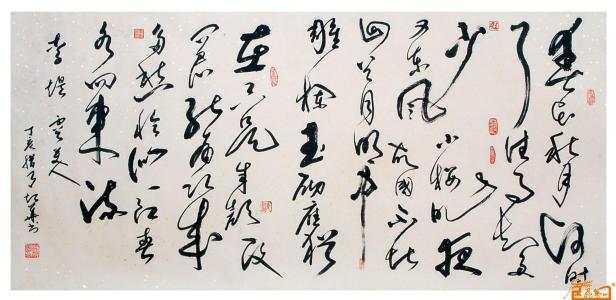 春花秋月何时
了往事知多
少小楼昨夜
又东风故国不堪
回首月明中
雕栏玉砌应犹
在只是朱颜改
问君能有几
多愁恰似一江春
水向东流
李煜虞美人
丁亥腊月